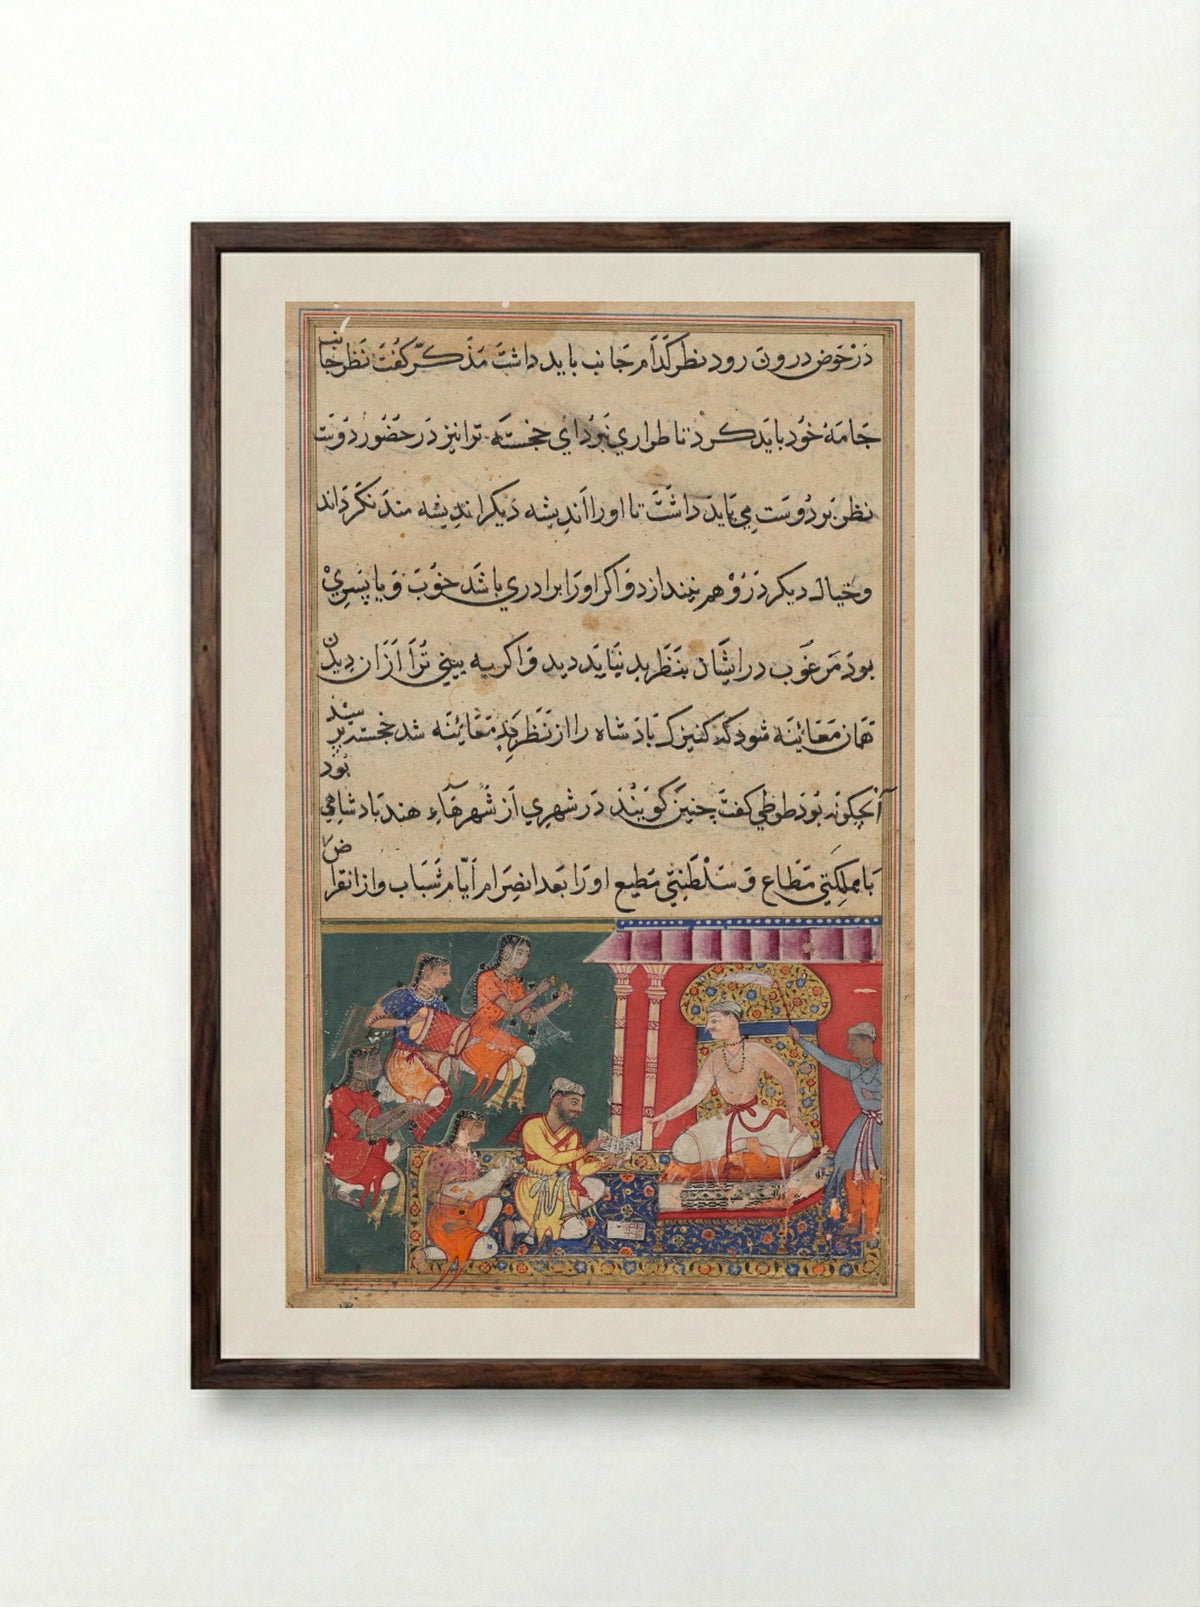 در حوض درون رود نظر کدام جانب باید داشت مذکر گفت نظر جانب
جامهٔ خود باید کرد تا طراري نبرد اي خجسته ترا نیز در حضور دوست
نظر بر دوست مي باید داشت تا او را اندیشه دیکر اندیشه مند نکرداند
و خیال دیکر در وهم نیندازد و اکر او را برادري باشد خوب و یا پسري
بود مرغوب در ایشان بنظر بد نباید دید و اکر به بیني ترا از ان دیدن
همان معائینه شود که کنیزک بادشاه را از نظر بد معائینه شد خجسته پرسید
آنچکونه بود طوطي کفت چنین کویند در شهري از شهرهاء هند بادشاهي بود
با مملکتي مطاع و سلطنتي مطیع او را بعد انصرام ایام شباب و از انقراض